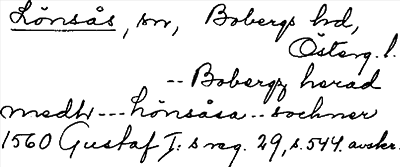 Lönsås, sn, Bobergs hd,
Österg. l.
-- Bobergz herad
medh --- Lönsåsa -- sochner
1560 Gustaf I:s reg. 29, s. 544. avskr.